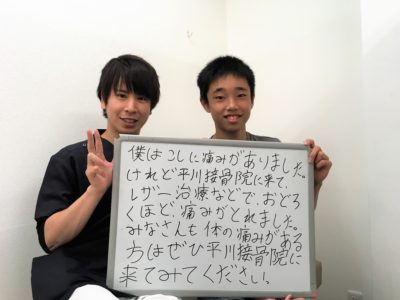 僕はこしに痛みがありました。
けれど平川接骨院に来て、
レザー治療などで、おどろ
くほど、痛みがとれました。
みなさんも体の痛みがある
方はぜひ平川接骨院に
来てみてください。